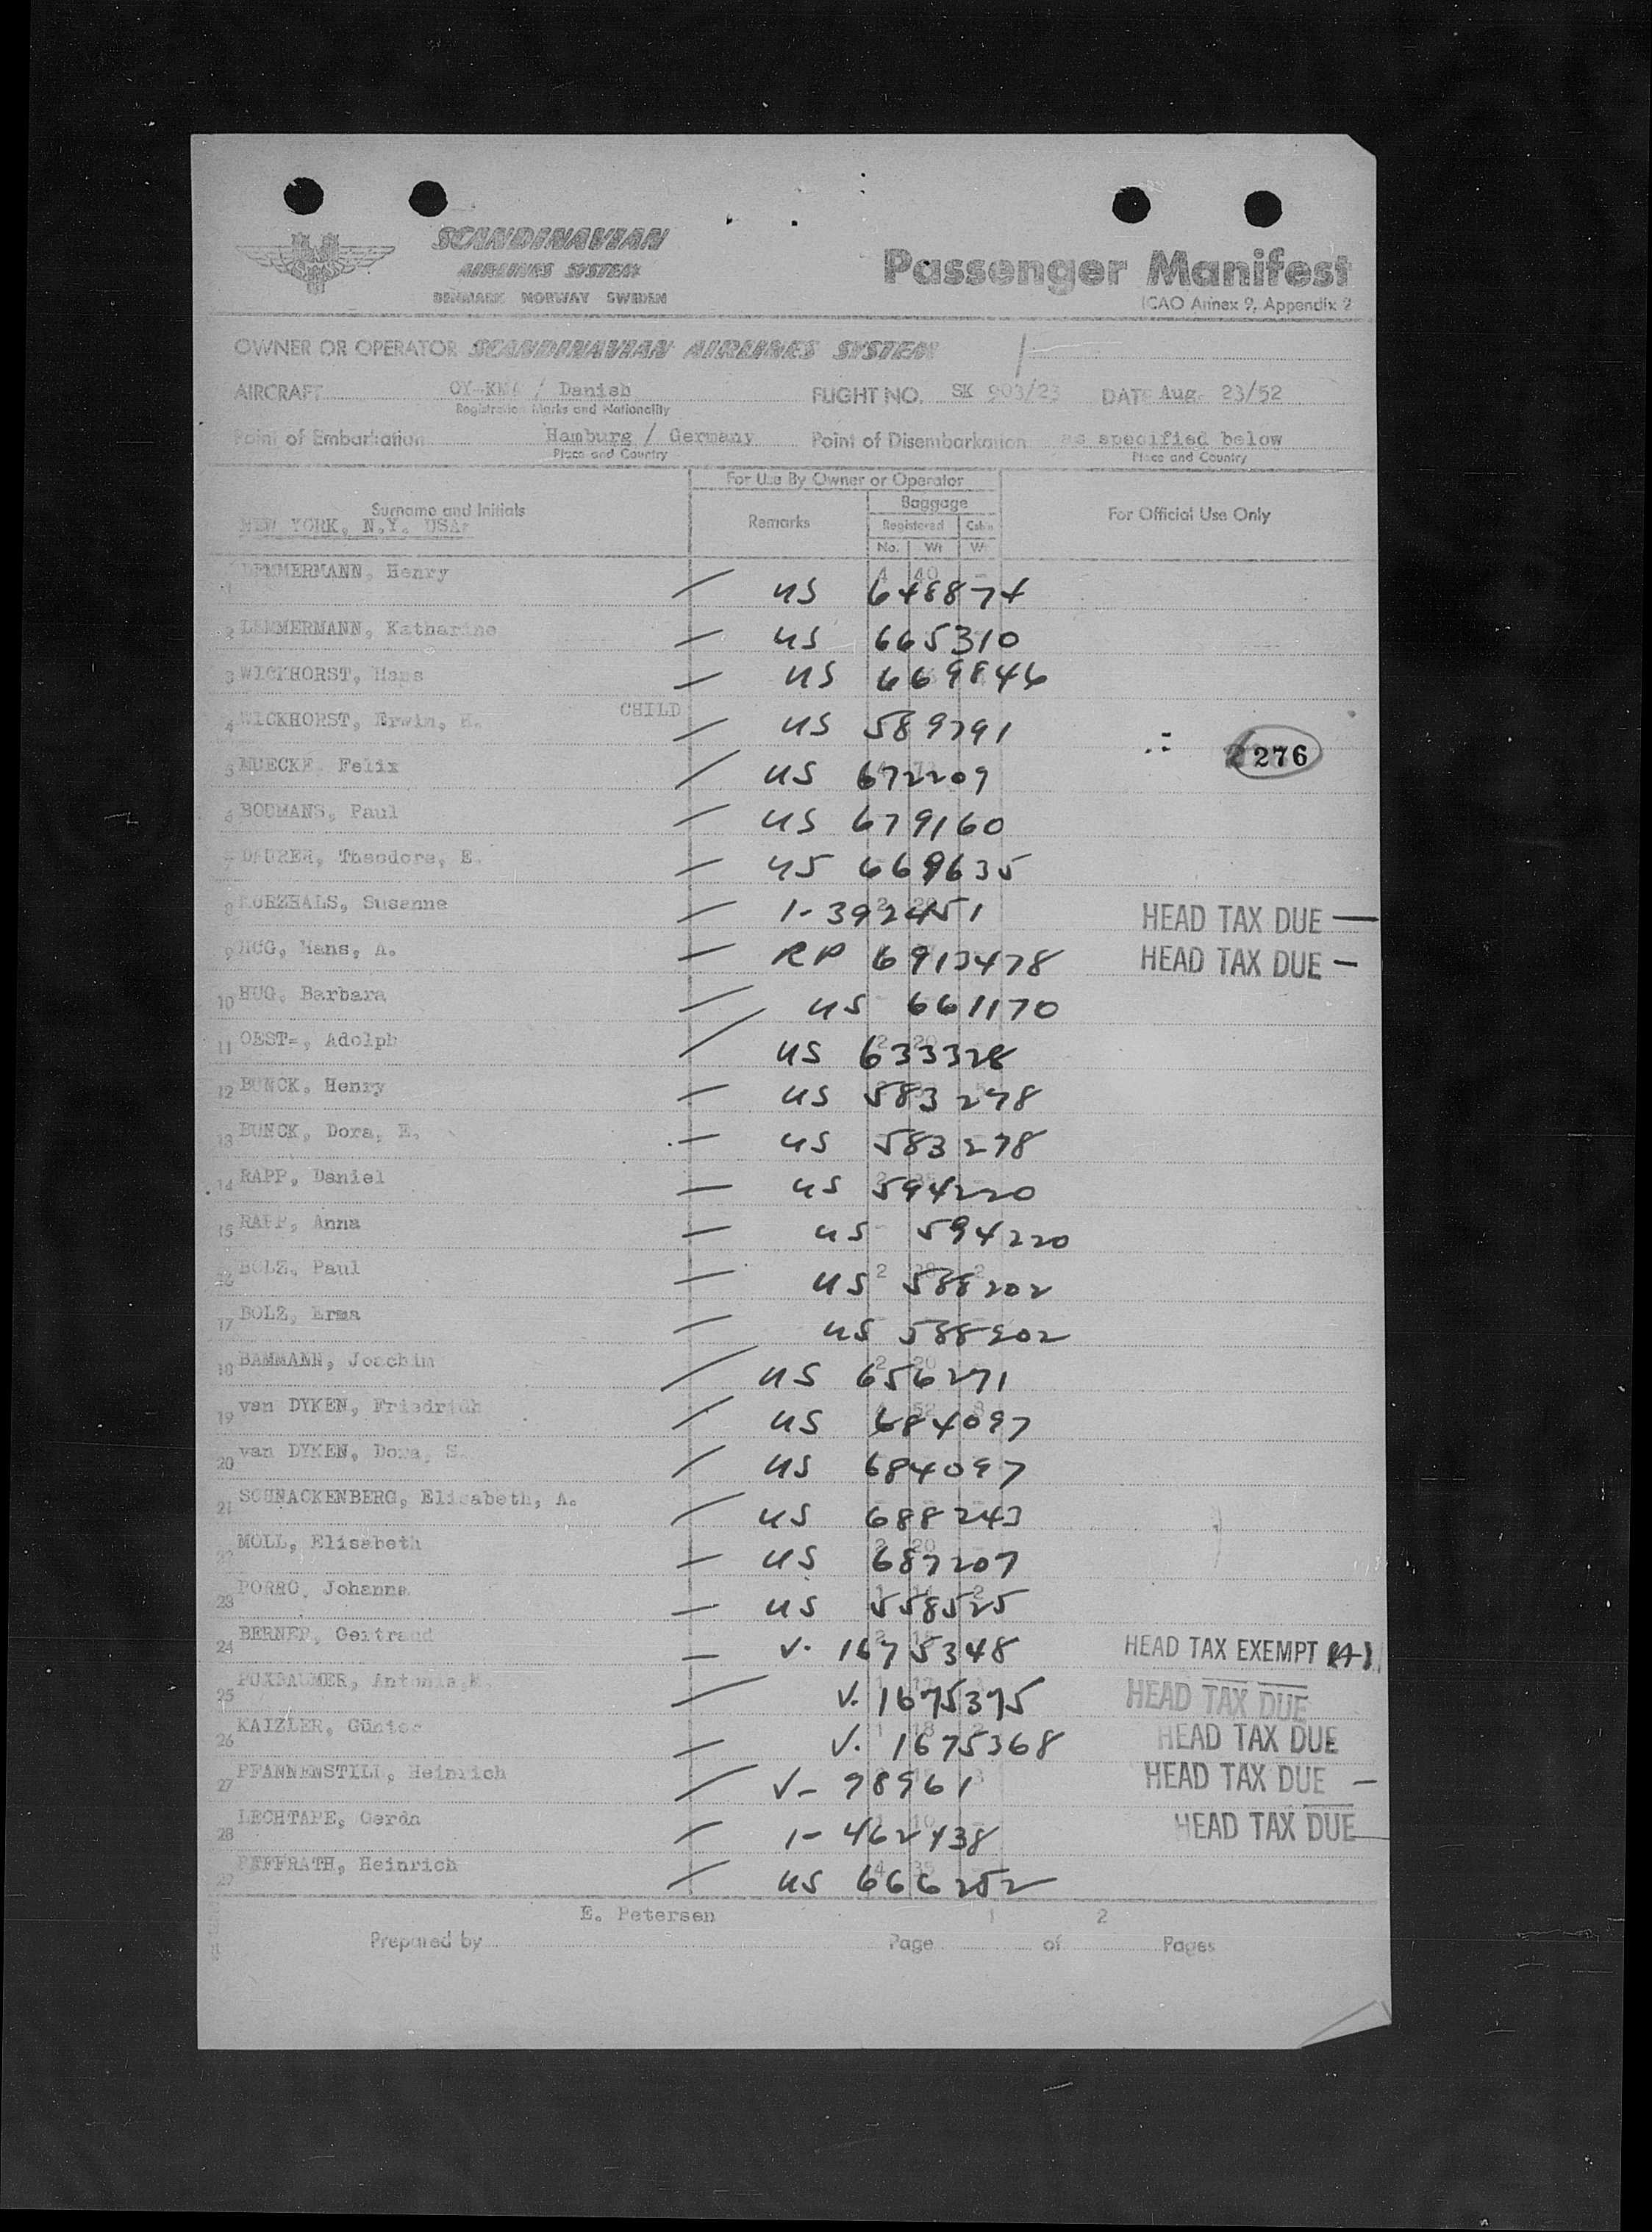 SCANDINAVIAN
AIRLINES SYSTEM
DENMARK NORWAY SWEDEN
Passenger Manifest
ICAO Annex 9, Appendix 2
OWNER OR OPERATOR SCANDINAVIAN AIRLINES SYSTEM
AIRCRAFT / Danish FLIGHT NO. SK 903/23 DATE Aug. 23/52
Registration Marks and Nationality
Point of Embarkation Hamburg / Germany Point of Disembarkation as specified below
Place and Country Place and Country
For Use By Owner or Operator
Surname and Initials Remarks Baggage For Official Use Only
NEW YORK, N.Y. USA.
Registered Cabin
No. Wt Wt
1 LEMMERMANN, Henry 4 40 - US 648874
2 LEMMERMANN, Katharine US 665310
3 WICKHORST, Hans US 669846
4 WICKHORST, Erwin, H. CHILD US 589791
276
5 MUECKE, Felix US 672209
6 BOUMANS, Paul US 679160
7 DAURER, Theodore, E. US 669635
8 KORZHALS, Susanne 1-392451 HEAD TAX DUE —
9 HUG, Hans, A. RP 6913478 HEAD TAX DUE —
10 HUG, Barbara US 661170
11 OEST-, Adolph 2 20 US 633328
12 BUNCK, Henry US 583278
13 BUNCK, Dora, E. US 583278
14 RAPP, Daniel US 594220
15 RAPP, Anna US 594220
16 BOLZ, Paul 2 2 US 588202
17 BOLZ, Erma US 588202
18 BAMMANN, Joachim 2 20 US 656271
19 van DYKEN, Friedrich 52 8 US 684097
20 van DYKEN, Dora, S. US 684097
21 SCHNACKENBERG, Elisabeth, A. US 688243
22 MOLL, Elisabeth 2 20 - US 687207
23 PORRO, Johanna 2 US 558525
24 BERNER, Gertraud V. 1675348 HEAD TAX EXEMPT
25 Antonia, V. 1675375 HEAD TAX DUE
26 KAIZLER, Günter 1 18 V. 1675368 HEAD TAX DUE
27 PFANNENSTILL, Heinrich 3 V- 98961 HEAD TAX DUE —
28 LECHTAPE, Gerda 10 - 1-462438 HEAD TAX DUE
29 PEFFRATH, Heinrich 4 35 US 666252
E. Petersen 1 2
Prepared by Page of Pages